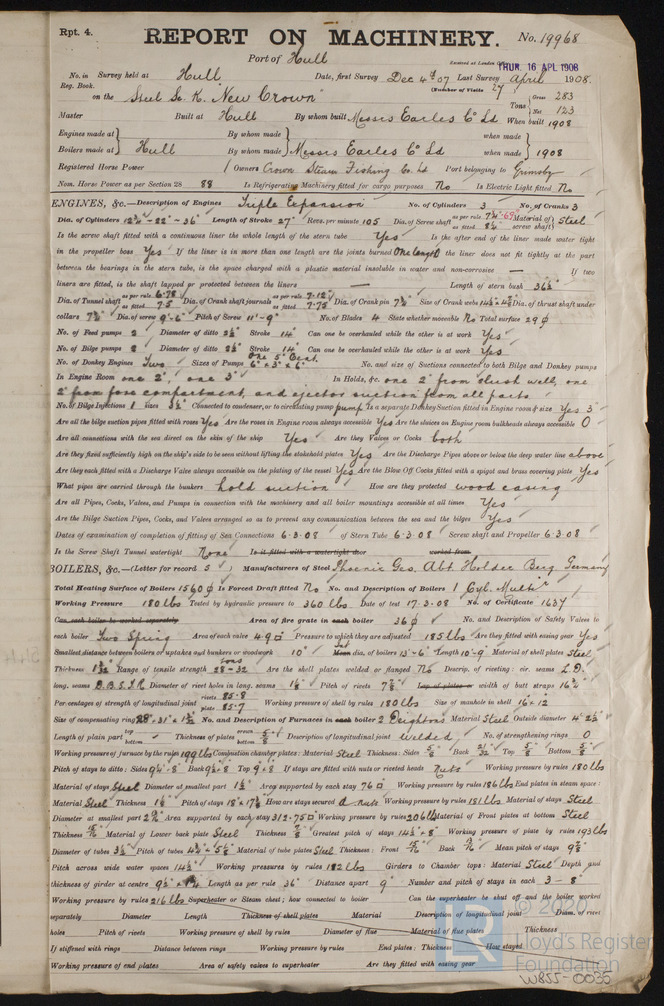 Rpt. 4. REPORT ON MACHINERY. No. 19968
Port of Hull
Received at London Office THUR. 16 APL 1908
No. in Survey held at Hull Date, first Survey Dec 4th 07 Last Survey April 1908.
Reg. Book. (Number of Visits 27
on the Steel Sc. K. "New Crown" Tons { Gross 283 Net 123
Master Built at Hull By whom built Messrs Earles Co Ld When built 1908
Engines made at By whom made when made
Boilers made at Hull By whom made Messrs Earles Co Ld when made 1908
Registered Horse Power Owners Crown Steam Fishing Co. Ld Port belonging to Grimsby
Nom. Horse Power as per Section 28 88 Is Refrigerating Machinery fitted for cargo purposes No Is Electric Light fitted No
ENGINES, &c.—Description of Engines Triple Expansion No. of Cylinders 3 No. of Cranks 3
Dia. of Cylinders 12½-22"-36" Length of Stroke 27" Revs. per minute 105 Dia. of Screw shaft as per rule 7.69 as fitted 8¼ Material of screw shaft } Steel
Is the screw shaft fitted with a continuous liner the whole length of the stern tube Yes Is the after end of the liner made water tight
in the propeller boss Yes If the liner is in more than one length are the joints burned One length If the liner does not fit tightly at the part
between the bearings in the stern tube, is the space charged with a plastic material insoluble in water and non-corrosive — If two
liners are fitted, is the shaft lapped or protected between the liners — Length of stern bush 36½"
Dia. of Tunnel shaft as per rule 6.78 as fitted 7.5 Dia. of Crank shaft journals as per rule 7.12" as fitted 7.75" Dia. of Crank pin 7¾" Size of Crank webs Dia. of thrust shaft under
collars 7¾" Dia. of screw 9'-6" Pitch of Screw 11'-9" No. of Blades 4 State whether moveable No Total surface 29
No. of Feed pumps 2 Diameter of ditto 2½" Stroke 14" Can one be overhauled while the other is at work Yes
No. of Bilge pumps 2 Diameter of ditto 2½" Stroke 14" Can one be overhauled while the other is at work Yes
No. of Donkey Engines Two Sizes of Pumps One 5" Cent. 6" x 3" x 6" No. and size of Suctions connected to both Bilge and Donkey pumps
In Engine Room one 2", one 3" In Holds, &c. one 2" from slush well, one
2" from fore compartment, and ejector suction from all parts
No. of Bilge Injections 1 sizes 3½" Connected to condenser, or to circulating pump pump Is a separate Donkey Suction fitted in Engine room & size Yes 3"
Are all the bilge suction pipes fitted with roses Yes Are the roses in Engine room always accessible Yes Are the sluices on Engine room bulkheads always accessible 0
Are all connections with the sea direct on the skin of the ship Yes Are they Valves or Cocks both
Are they fixed sufficiently high on the ship's side to be seen without lifting the stokehold plates Yes Are the Discharge Pipes above or below the deep water line above
Are they each fitted with a Discharge Valve always accessible on the plating of the vessel Yes Are the Blow Off Cocks fitted with a spigot and brass covering plate Yes
What pipes are carried through the bunkers hold suction How are they protected wood casing
Are all Pipes, Cocks, Valves, and Pumps in connection with the machinery and all boiler mountings accessible at all times Yes
Are the Bilge Suction Pipes, Cocks, and Valves arranged so as to prevent any communication between the sea and the bilges Yes
Dates of examination of completion of fitting of Sea Connections 6.3.08 of Stern Tube 6.3.08 Screw shaft and Propeller 6.3.08
Is the Screw Shaft Tunnel watertight None Is it fitted with a watertight door worked from
BOILERS, &c.—(Letter for record S) Manufacturers of Steel Phoenix Ges. Abt. Horder Berg. Germany
Total Heating Surface of Boilers 1560 Is Forced Draft fitted No No. and Description of Boilers 1 Cyl. Multr
Working Pressure 180 lbs Tested by hydraulic pressure to 360 lbs. Date of test 17.3.08 No. of Certificate 1637
Can each boiler be worked separately Area of fire grate in each boiler 36 No. and Description of Safety Valves to
each boiler Two Spring Area of each valve 4.90 Pressure to which they are adjusted 185 lbs Are they fitted with easing gear Yes
Smallest distance between boilers or uptakes and bunkers or woodwork 10" Mean dia. of boilers 13'-6" Length 10'-9" Material of shell plates Steel
Thickness Range of tensile strength 28-32 tons Are the shell plates welded or flanged No Descrip. of riveting: cir. seams L.D.
long. seams D.B.S.T.R Diameter of rivet holes in long. seams 1⅛ Pitch of rivets 7⅞" Lap of plates or width of butt straps 16¾"
Per centages of strength of longitudinal joint rivets 85.8 plate 85.7 Working pressure of shell by rules 180 lbs Size of manhole in shell 16 x 12
Size of compensating ring No. and Description of Furnaces in each boiler 2 Deightons Material Steel Outside diameter
Length of plain part top bottom Thickness of plates crown bottom Description of longitudinal joint welded No. of strengthening rings 0
Working pressure of furnace by the rules 199 lbs Combustion chamber plates: Material Steel Thickness: Sides ⅝ Back 21/32 Top ⅝ Bottom ⅝
Pitch of stays to ditto: Sides 9¼ x 8" Back 9½ x 8 Top 9 x 8 If stays are fitted with nuts or riveted heads nuts Working pressure by rules 180 lbs
Material of stays Steel Diameter at smallest part 1½" Area supported by each stay 76 Working pressure by rules 186 lbs End plates in steam space:
Material Steel Thickness Pitch of stays How are stays secured d. nuts Working pressure by rules 181 lbs Material of stays Steel
Diameter at smallest part Area supported by each stay 312.75 Working pressure by rules 206 lbs Material of Front plates at bottom Steel
Thickness Material of Lower back plate Steel Thickness Greatest pitch of stays 14½ x 8" Working pressure of plate by rules 193 lbs
Diameter of tubes 3½ Pitch of tubes Material of tube plates Steel Thickness: Front Back Mean pitch of stays
Pitch across wide water spaces 14½" Working pressures by rules 182 lbs Girders to Chamber tops: Material Steel Depth and
thickness of girder at centre Length as per rule 36" Distance apart 9" Number and pitch of stays in each 3 - 8"
Working pressure by rules 216 lbs Superheater or Steam chest; how connected to boiler Can the superheater be shut off and the boiler worked
separately Diameter Length Thickness of shell plates Material Description of longitudinal joint Diam. of rivet
holes Pitch of rivets Working pressure of shell by rules Diameter of flue Material of flue plates Thickness
If stiffened with rings Distance between rings Working pressure by rules End plates: Thickness How stayed
Working pressure of end plates Area of safety valves to superheater Are they fitted with easing gear
LR © 2020
Lloyd's Register
Foundation
W855-0035